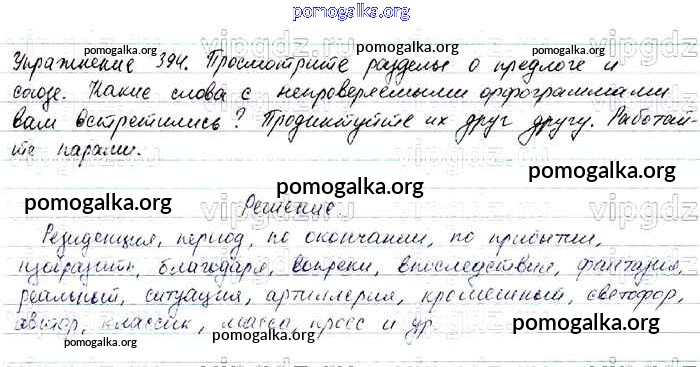 pomogalka.org
pomogalka.org
pomogalka.org
Упражнение 394. Просмотрите разделы о предлоге и
союзе. Какие слова с непроверяемыми орфограммами
вам встретились? Продиктуйте их друг другу. Работай-
те парами.
pomogalka.org
pomogalka.org
pomogalka.org
Решение
Резиденция, период, по окончании, по прибытии,
изобразить, благодаря, вопреки, впоследствии, фантазия,
реальный, ситуация, артиллерия, кромешный, светофор,
автор, классик, масса, кросс и др.
pomogalka.org
pomogalka.org
pomogalka.org